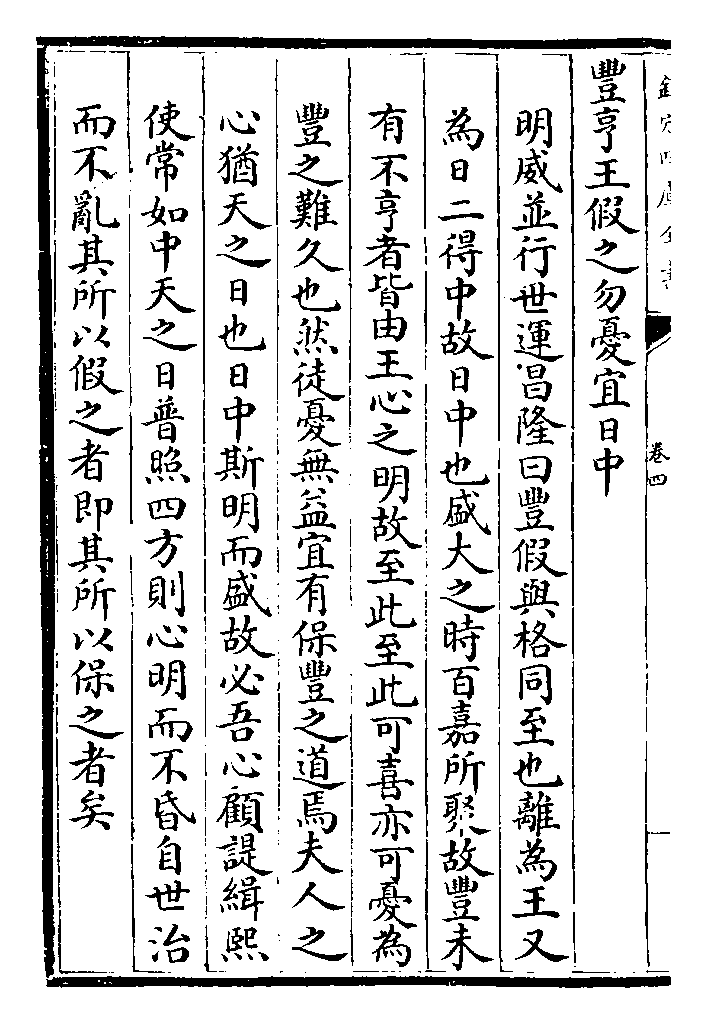 欽定四庫全書
卷四
豐亨王假之勿憂宜日中
明威並行世運昌隆曰豐假與格同至也離為王又
為日二得中故日中也盛大之時百嘉所聚故豐未
有不亨者皆由王心之明故至此至此可喜亦可憂為
豐之難久也然徒憂無益宜有保豐之道焉夫人之
心猶天之日也日中斯明而盛故必吾心顧諟緝熙
使常如中天之日普照四方則心明而不昏自世治
而不亂其所以假之者即其所以保之者矣